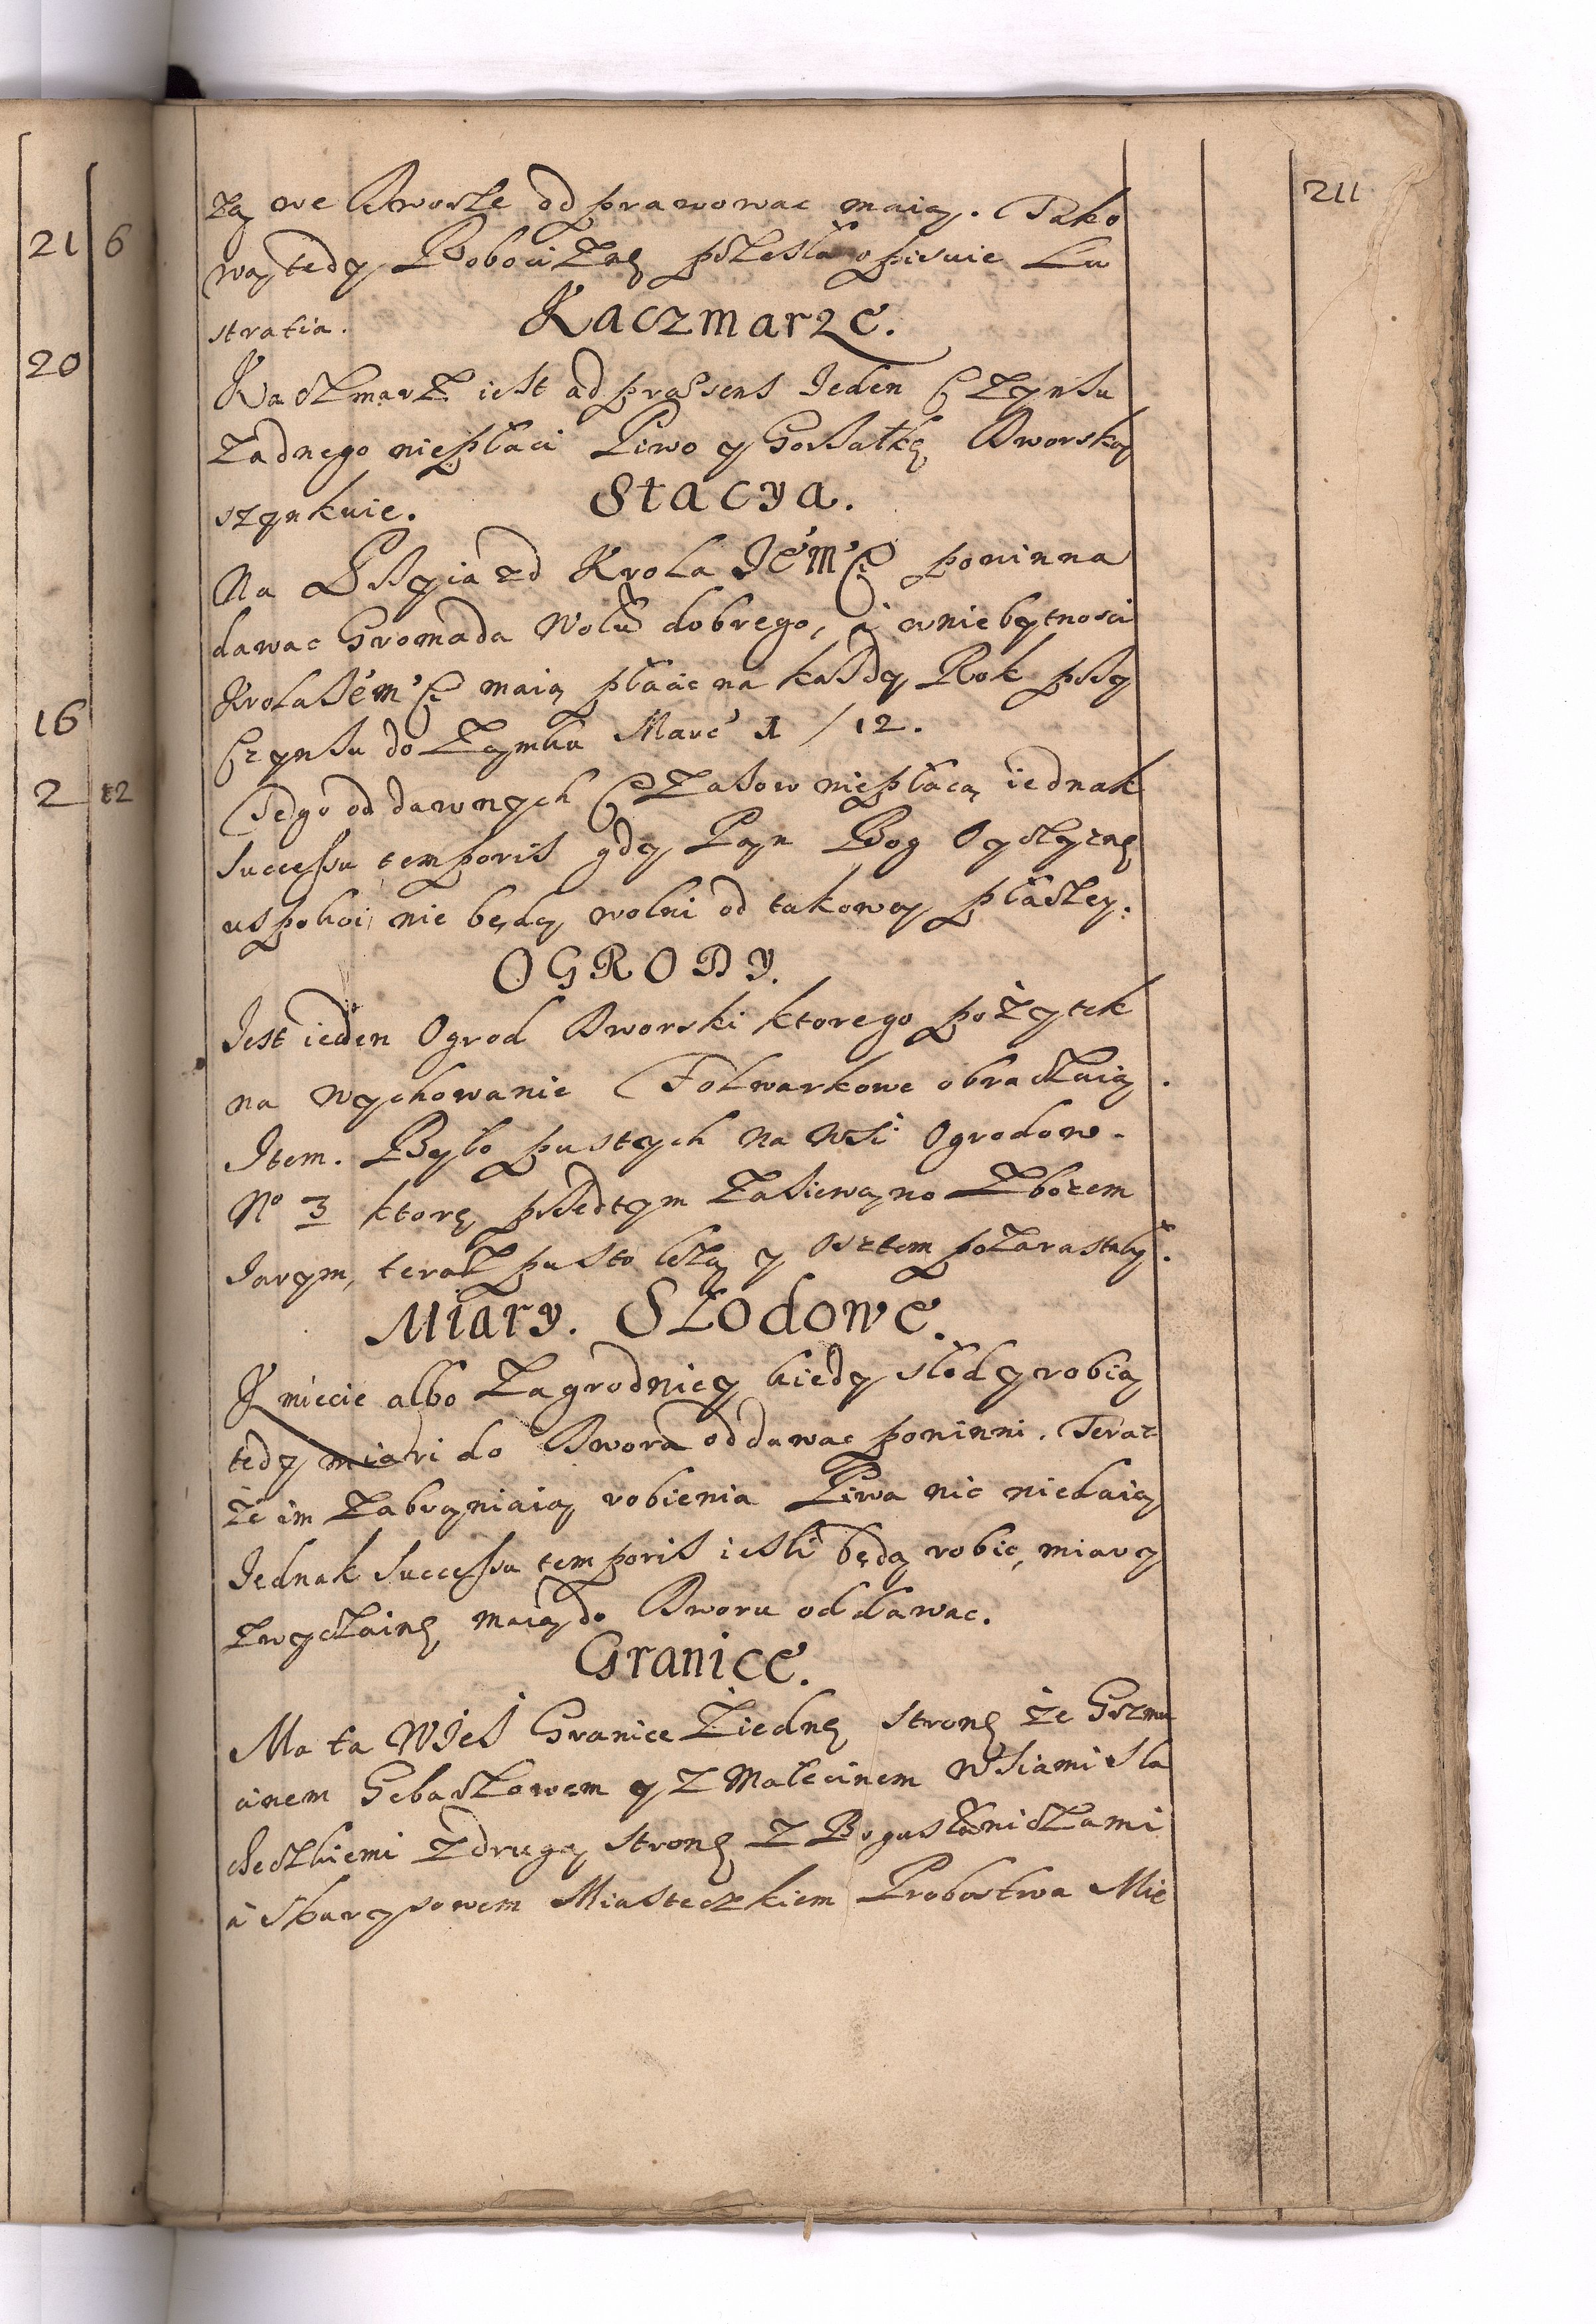 21 6
20
16
2 12
211
zą we Dworze odprawowac maią. Tako
wą tedy Robociznę przeszła opisuie Lu
stratia.
Kaczmarze.
Kaczmarz iest ad præsens Jeden Czynszu
zadnego niepłaci Piwo y Gorzałkę Dworską
szynkuie.
Stacya.
Na Przyiazd Krola Jém'C powinna
dawac Gromada Wołu dobrego, à wniebytnosci
Krola Jém'C maią płacic na kazdy Rok przy
Czynszu do Zamku Març 1 / 12.
Tego od dawnych Czasow niepłacą iednak
successu temporis gdy Pan Bog Oyczyznę
uspokoi, nie będą wolni od takowey płaczey.
OGRODY.
Jest ieden Ogrod Dworski ktorego pożytek
na wychowanie Folwarkowe obracaią.
Item. Było pustych na Wsi Ogrodow.
No 3 ktorę przedtym zasiewano Zbozem
Jarym, teraz pusto lezą y ostem pozarastały.
Miary. Słodowe.
Kmiecie albo Zagrodnicy kiedy słody robią
tedy miari do Dwora oddawac powinni. Teraz
że im zabraniaią robienia Piwa nic niedaią
Jednak successu temporis iesli będą robic, miary
zwyczainę maią do Dworu oddawac.
Granice.
Ma ta Wies Granice z iednę stronę że Grzmu
cinem Gebarzowem y z Malecinem Wsiami Sla
checkiemi z drugą stronę z Bogusławicami
à Skarysowem Miasteczkiem Probostwa Mie